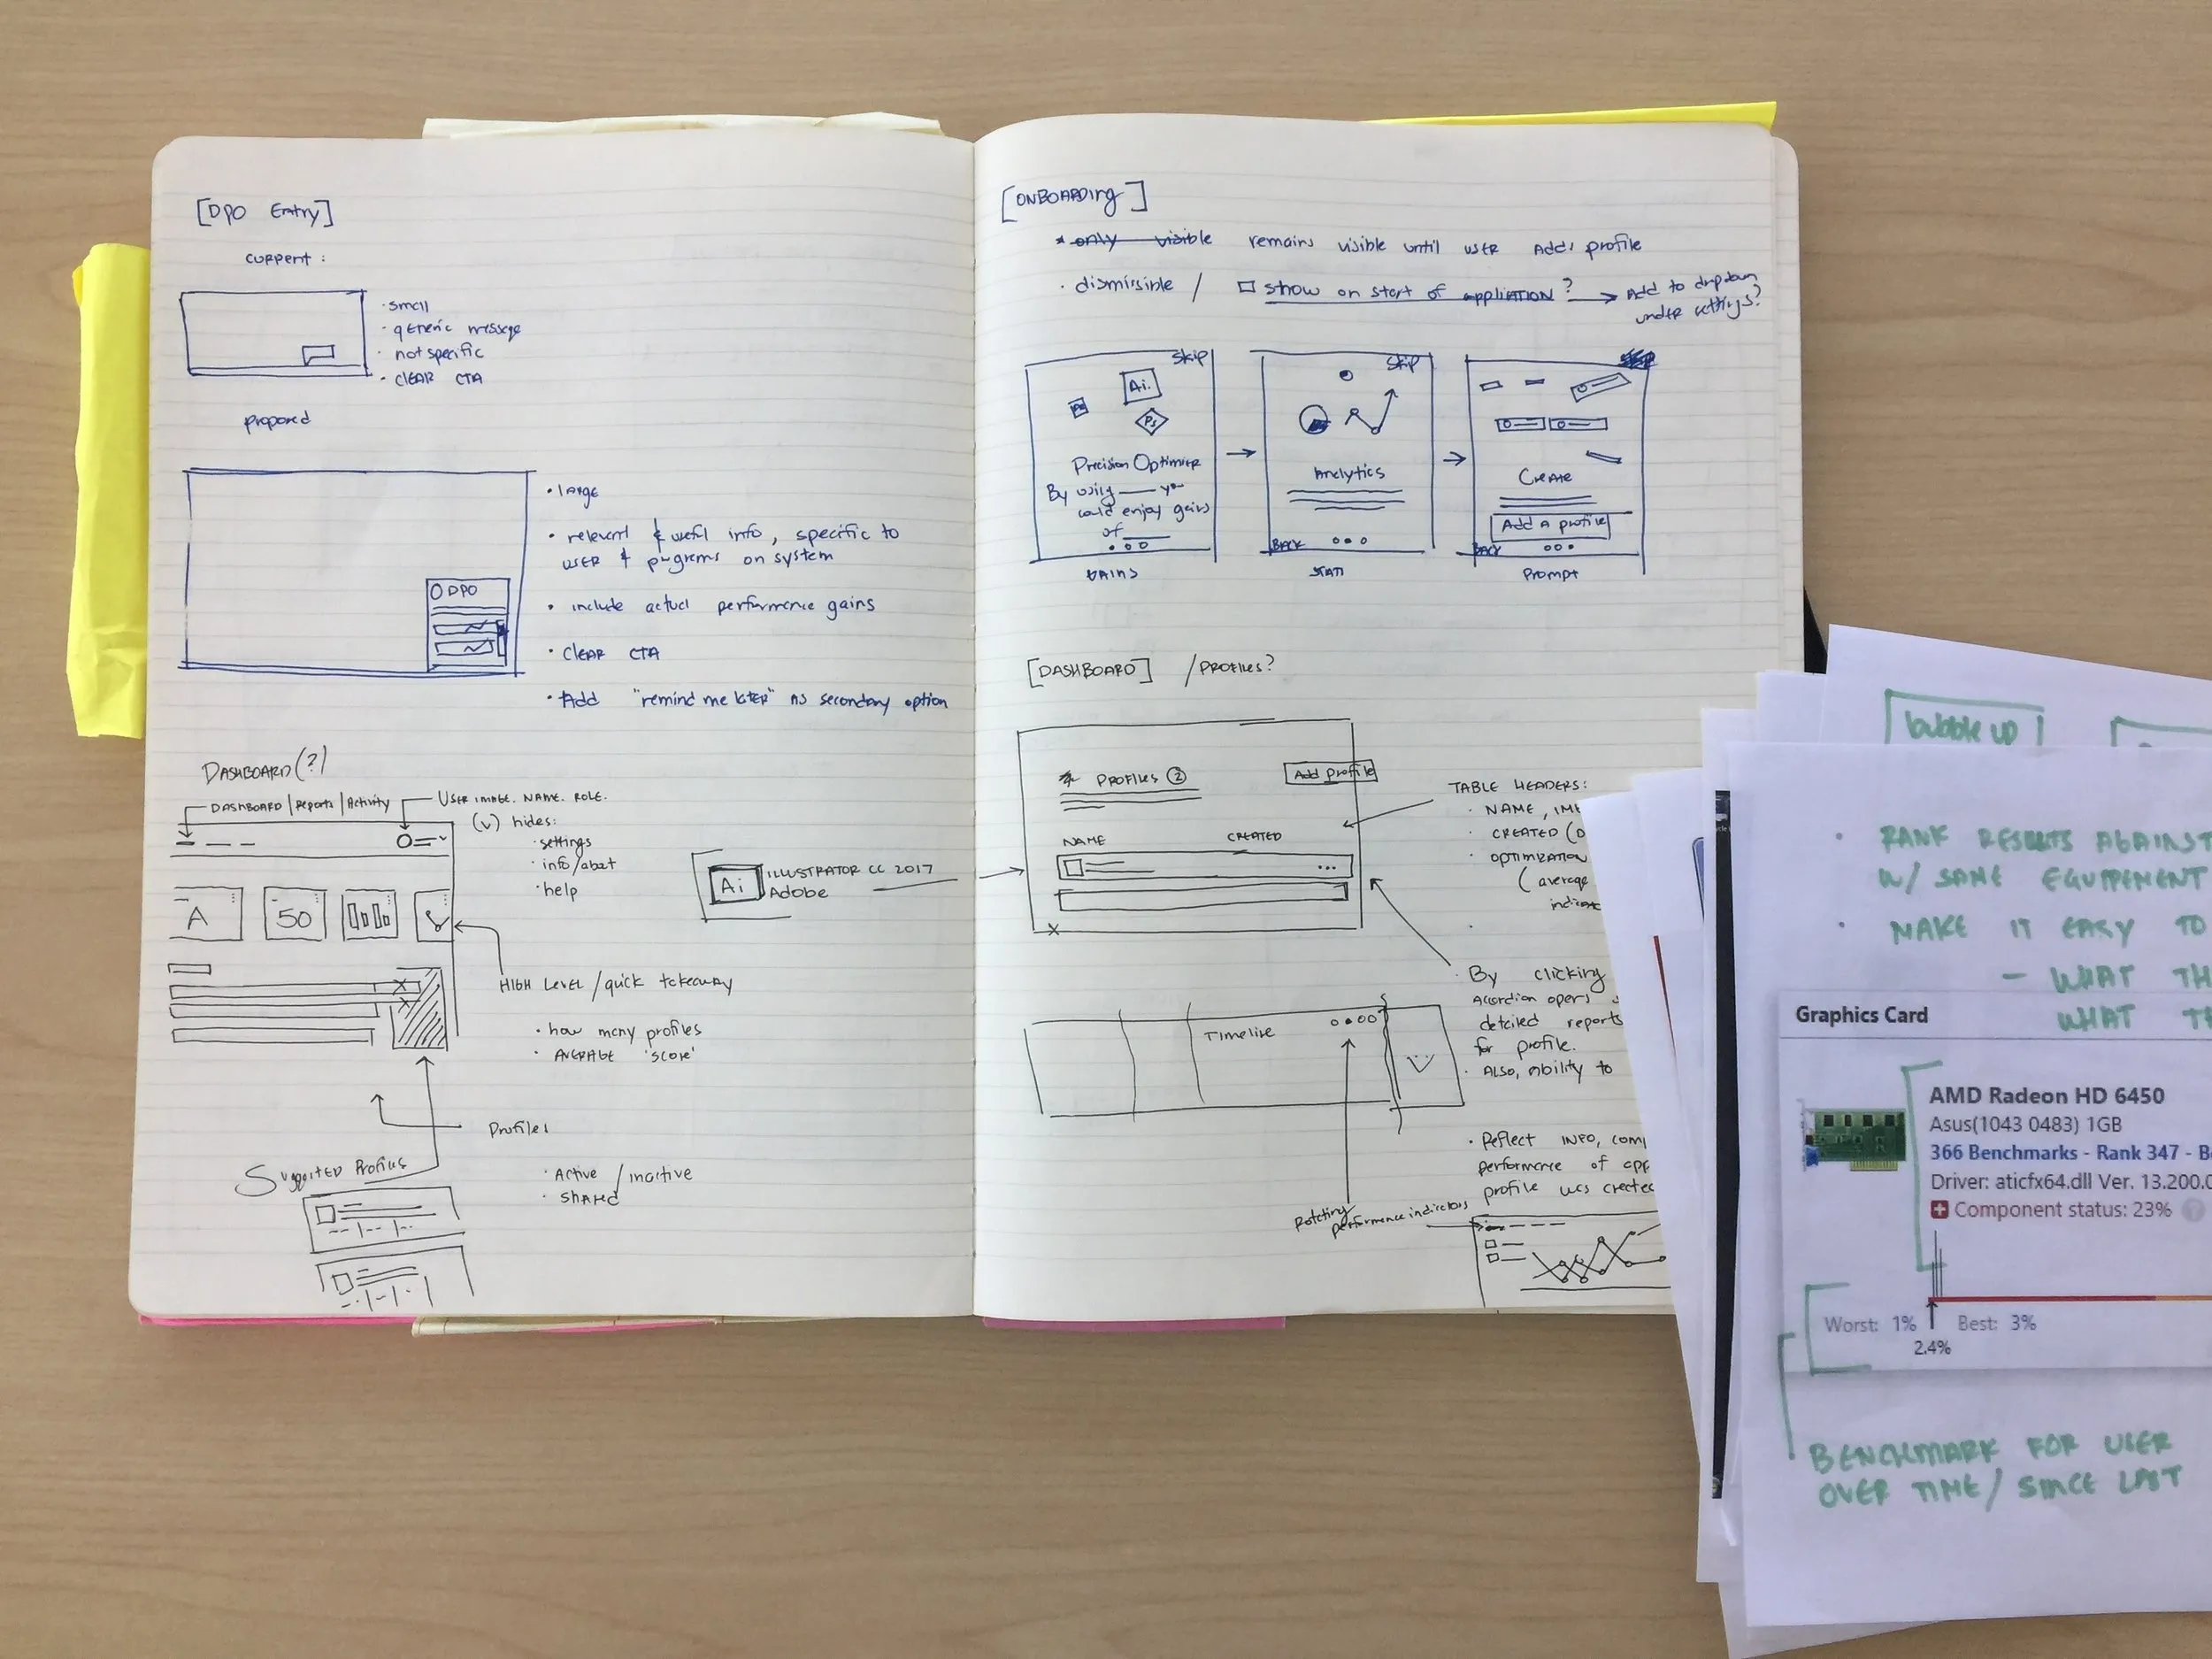 [DPO Entry]
CURRENT:
· small
· generic message
· not specific
· CLEAR CTA
proposed
ODPO
• large
• relevant & useful info, specific to
USER & programs on system
• include actual performance gains
• CLEAR CTA
• Add "remind me later" AS secondary option
DASHBOARD(?)
DASHBOARD | Reports | Activity
USER IMAGE. NAME. ROLE.
(v) hides:
· settings
· info/about
· help
A
50
HIGH LEVEL / quick takeaway
· how many profiles
· AVERAGE 'SCORE'
Profiles
· Active / inactive
· SHARED
Suggested Profiles
Ai
ILLUSTRATOR CC 2017
Adobe
[ONBOARDing]
* only visible remains visible until user Adds profile
· dismissible / □ show on start of application? → Add to dropdown
under settings?
Skip
Ai.
Ps
Precision Optimizer
By using ___ you
could enjoy gains
of ___
GAINS
Skip
Analytics
BACK
STATS
Create
Add a profile
BACK
Prompt
[DASHBOARD] / PROFILES?
PROFILES ②
Add profile
NAME
CREATED
...
TABLE HEADERS:
· NAME,
· CREATED (
· OPTIMIZATION
( average
By clicking
Accordion opens
detailed reports
for profile.
· ALSO, ability to
Timeline
· Reflect INFO,
performance of
profile was created
Rotating
performance indicators
bubble up
· RANK RESULTS AGAINST
W/ SAME EQUIPEMENT
· MAKE IT EASY TO
- WHAT
WHAT
Graphics Card
AMD Radeon HD 6450
Asus(1043 0483) 1GB
366 Benchmarks - Rank 347 -
Driver: aticfx64.dll Ver. 13.200.
Component status: 23% ?
Worst: 1%
Best: 3%
2.4%
BENCHMARK FOR USER
OVER TIME / SINCE LAST